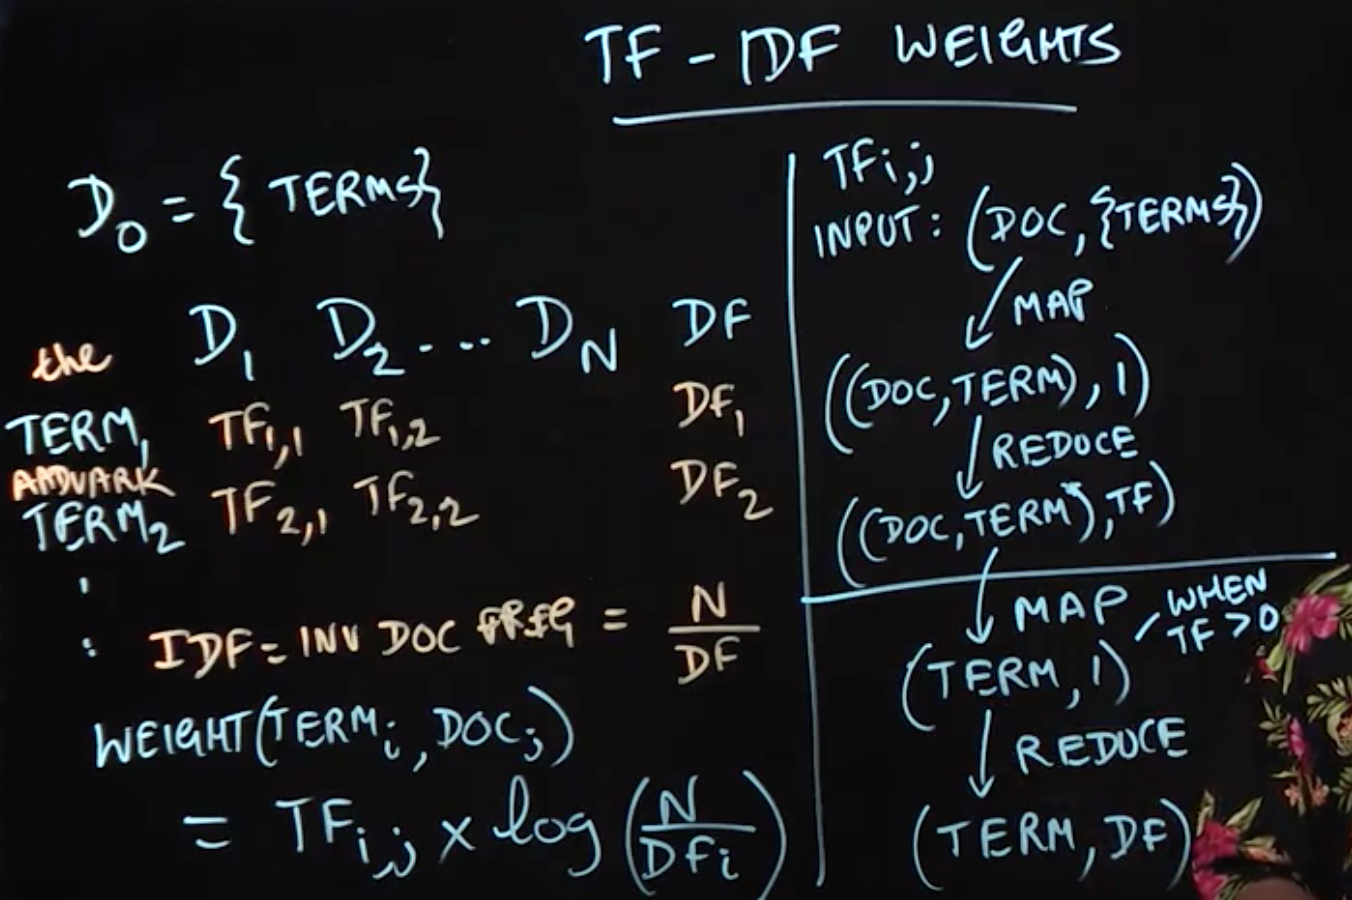 TF-IDF WEIGHTS
D0 = { TERMS}
D1 D2 .... DN DF
the
TERM1 TF1,1 TF1,2 DF1
AADVARK
TERM2 TF2,1 TF2,2 DF2
:
:
IDF = INV DOC FREQ = N/DF
WEIGHT(TERMi, DOCj)
= TFi,j x log (N/DFi)
TFi,j
INPUT: (DOC, {TERMS})
MAP
((DOC, TERM), 1)
REDUCE
((DOC, TERM), TF)
MAP WHEN TF > 0
(TERM, 1)
REDUCE
(TERM, DF)